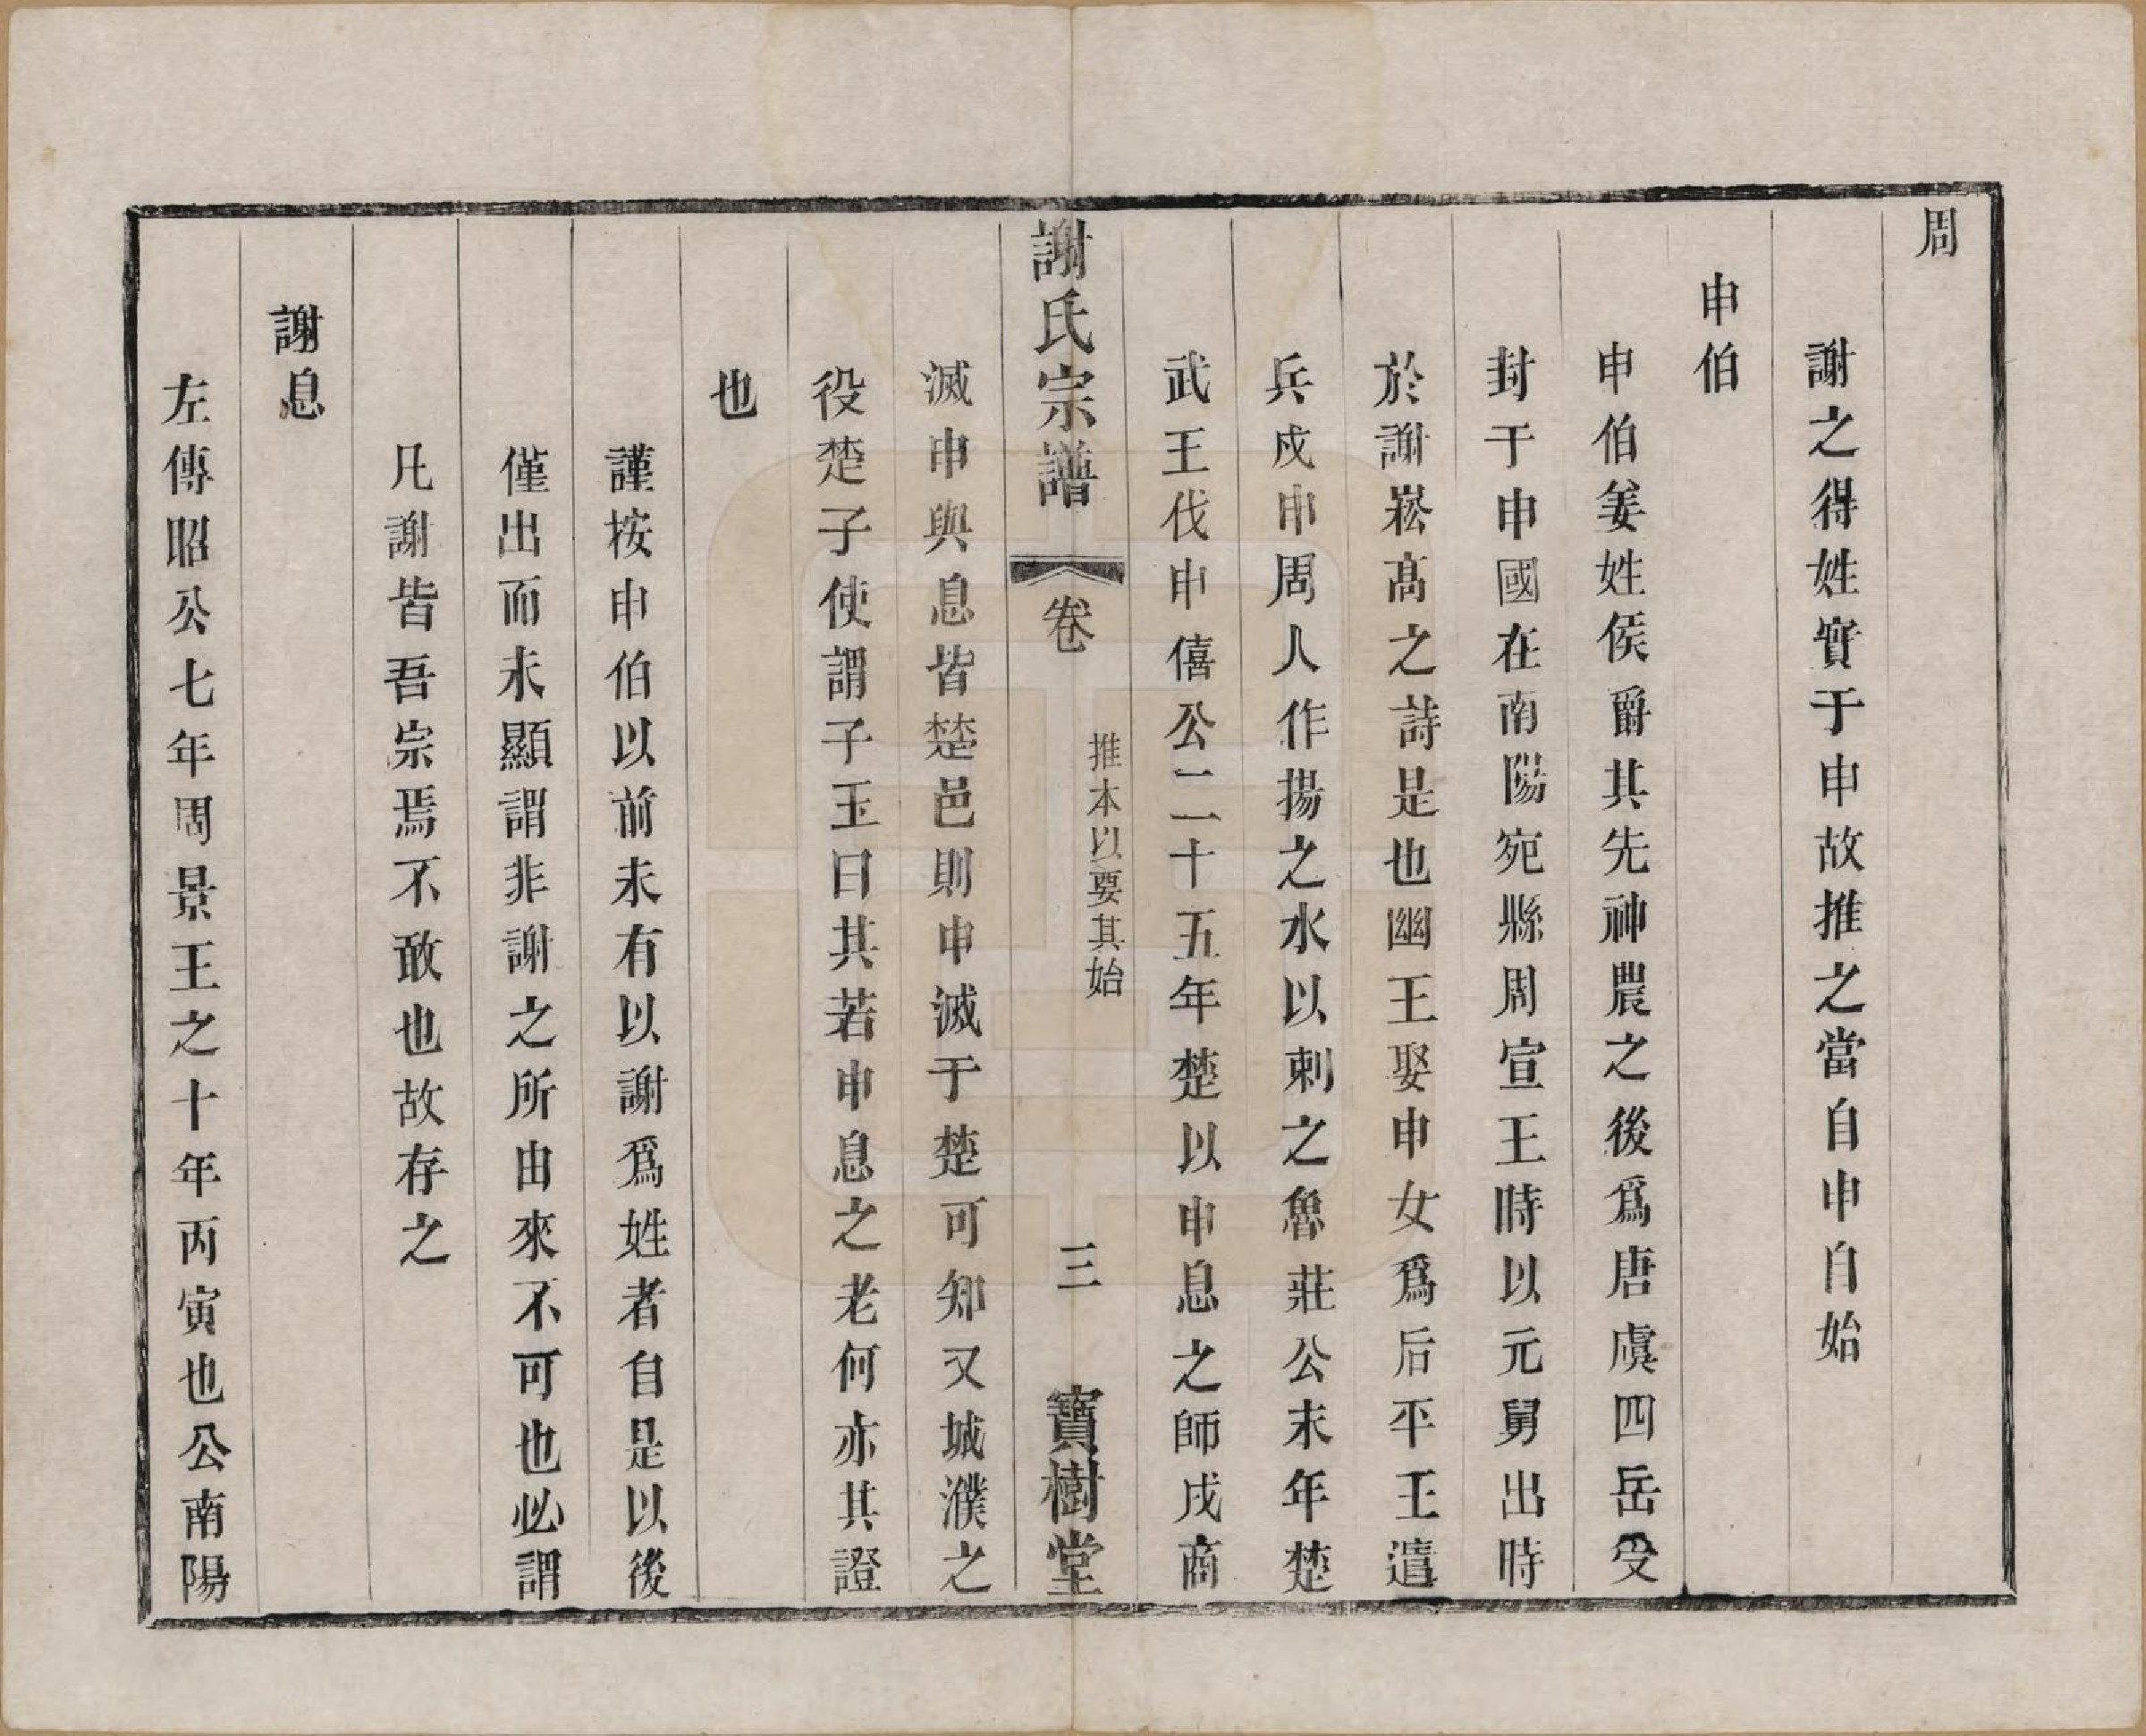 周
謝之得姓實于申故推之當自申自始
申伯
申伯姜姓侯爵其先神農之後爲唐虞四岳受
封于申國在南陽宛縣周宣王時以元舅出時
於謝崧高之詩是也幽王娶申女爲后平王遣
兵戍申周人作揚之水以刺之魯莊公末年楚
武王伐申僖公二十五年楚以申息之師戍商
謝氏宗譜 卷 推本以要其始 三 寶樹堂
滅申與息皆楚邑則申滅于楚可知又城濮之
役楚子使謂子玉曰其若申息之老何亦其證
也
謹按申伯以前未有以謝爲姓者自是以後
僅出而未顯謂非謝之所由來不可也必謂
凡謝皆吾宗焉不敢也故存之
謝息
左傳昭公七年周景王之十年丙寅也公南陽